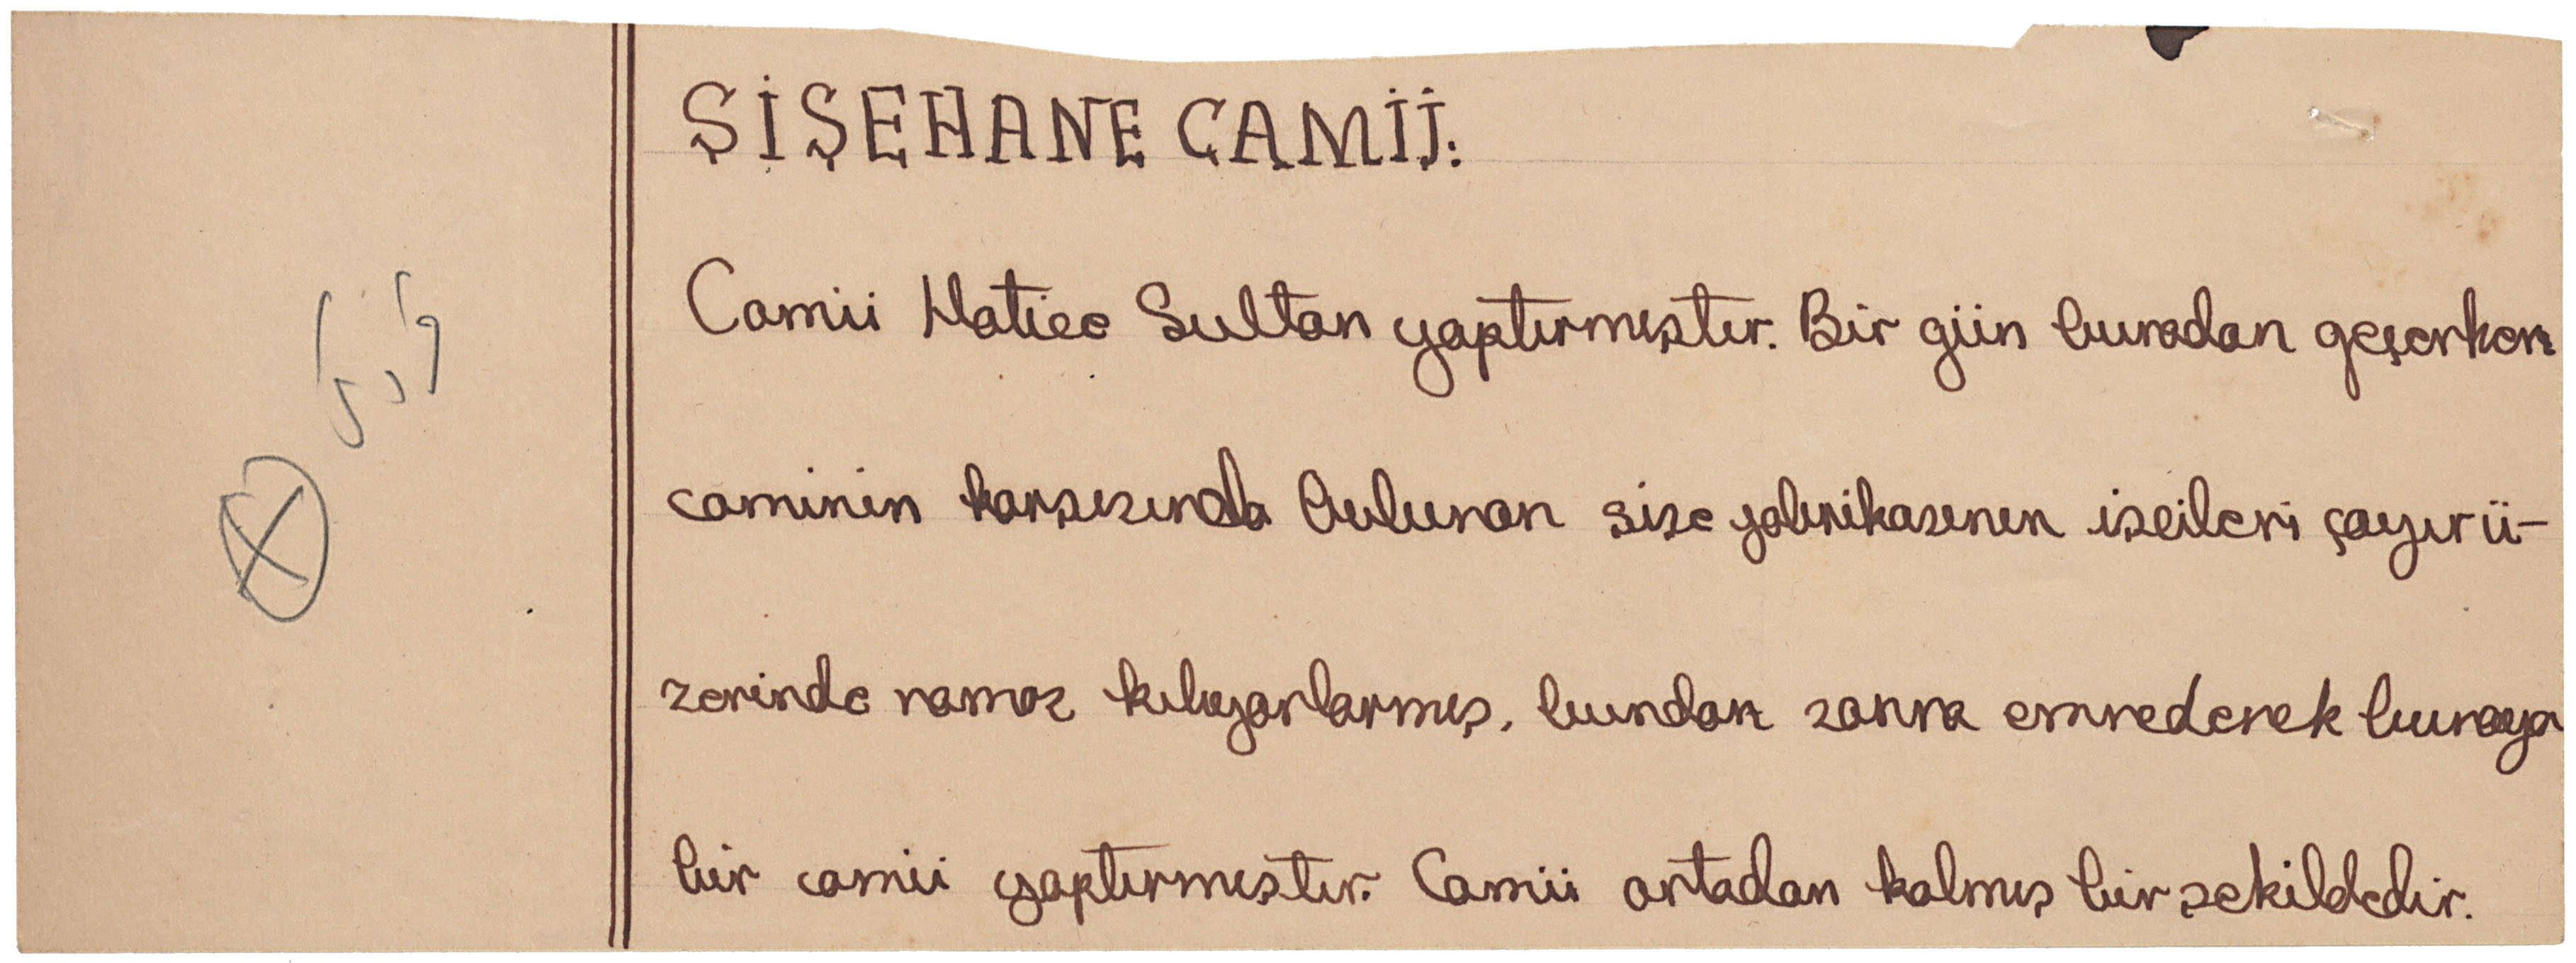 ŞİŞEHANE CAMİİ:
Camii Hatice Sultan yaptırmıştır. Bir gün buradan geçerken
caminin karşısında bulunan şişe fabrikasının işçileri çayır ü-
zerinde namaz kılıyorlarmış, bundan sonra emrederek buraya
bir camii yaptırmıştır. Camii ortadan kalmış bir şekildedir.